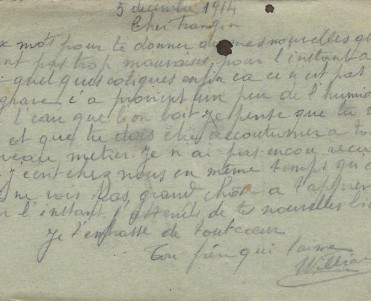 5 décembre 1914
Cher frangin
x mots pour te donner de mes nouvelles q
nt pas trop mauvaises, pour l'instant a
quelques coliques enfin ca c n'est pas
grave c'a provient un peu de l'humi
l'eau que l'on boit je pense que tu
et que tu dois etre accoutumer a to
veau metier. Je n'ai pas encore recu
j'ecrit chez nous en meme temps qu'a
ne vois pas grand chose a t'appren
r l'instant. J'attends de tes nouvelles
Je t'embrasse de tout coeur
Ton frère qui t'aime
William